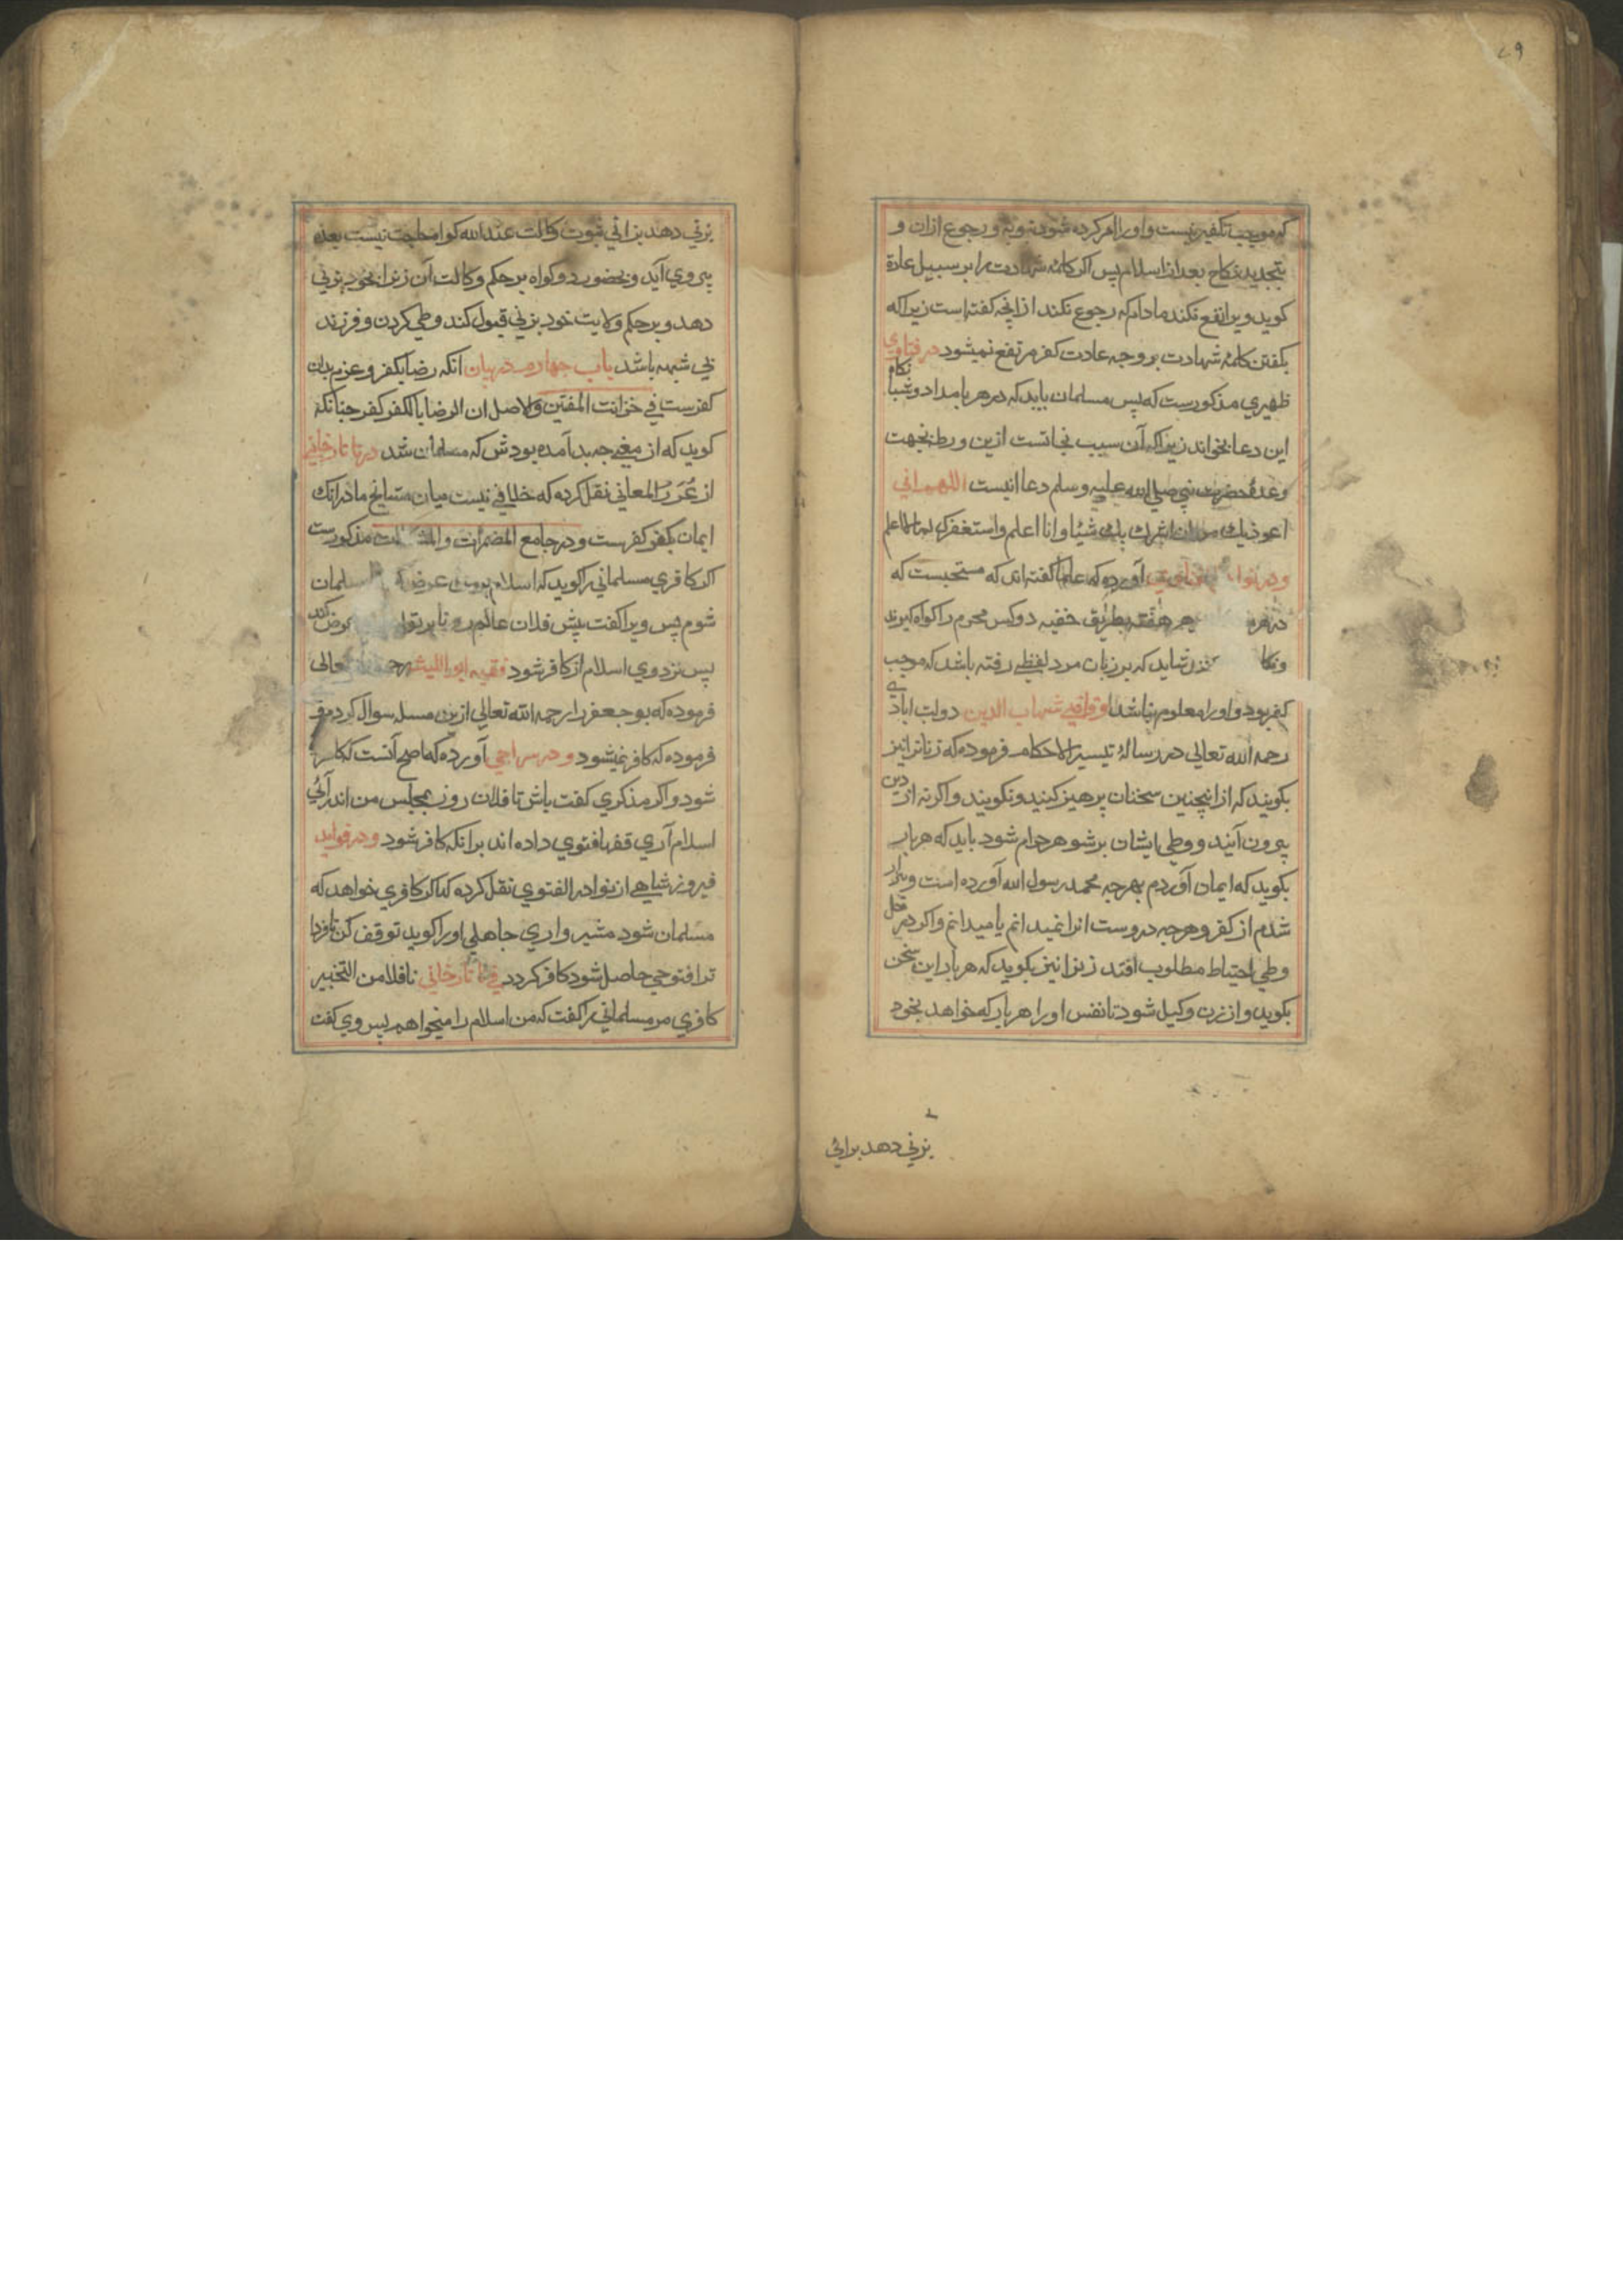 ٤٩
که موجب تکفیر نیست و او را امر کرده شود بتوبه و رجوع از ان و
بتجدید نکاح بعد از اسلام پس اکر کلمهٔ شهادت را بر سبیل عادة
کوید ویرا نفع نکند مادام که رجوع نکند از انچه کفته است زیرا که
بکفتن کلمهٔ شهادت بر وجه عادت کفر مرتفع نمیشود در فتاوی
ظهیری مذکورست که پس مسلمان باید که در هر بامداد و شبانکاه
این دعا بخواند زیرا که آن سبب نجاتست ازین ورطه بجهت
وعدهٔ حضرت نبی صلی الله علیه وسلم دعا اینست اللهم انی
اعوذ بک من ان اشرک بک شیئا و انا اعلم و استغفرک لما لا اعلم
آورده که علما کفته اند که مستحبست که
هر هفته بطریق خفیه دو کس محرم را کواه کیرند
شاید که بر زبان مرد لفظی رفته باشد که موجب
کفر بود و او را معلوم نباشد و قاضی شهاب الدین دولت ابادی
رحمه الله تعالی در رسالهٔ تیسیر الاحکام فرموده که زنانرا نیز
بکویند که از اینچنین سخنان پرهیز کنید و نکویند و اکر نه از دین
بیرون آیند و وطی ایشان بر شوهر حرام شود باید که هر بار
بکوید که ایمان آوردم بهرچه محمد رسول الله آورده است و بیزار
شدم از کفر و هرچه دروست انرا نمیدانم یا میدانم و اکر در محل
وطی احتیاط مطلوب افتد زنرا نیز بکوید که هر بار این سخن
بکوید و از زن وکیل شود تا نفس او را هر بار که خواهد بخود
بزنی دهد برائی
بزنی دهد برائی ثبوت وکالت عند الله کواه حاجت نیست بعده
بیروی آید و بحضور دو کواه بر حکم وکالت آن زنرا بخود بزنی
دهد و بر حکم ولایت خود بزنی قبول کند وطی کردن و فرزند
بی شبهه باشد باب چهارم در بیان انکه رضا بکفر و عزم بدان
کفرست فی خزانت المفتین والاصل ان الرضا بالکفر کفر چنانکه
کوید که از مغی چه بد آمده بودش که مسلمان شد در تاتارخانی
از غرر المعانی نقل کرده که خلافی نیست میان مشایخ ما در انک
ایمان بکفر کفرست و در جامع المضمرات و مذکورست
اکر کافری مسلمانی را کوید که اسلام عرض مسلمان
شوم پس ویرا کفت پیش فلان عالم رو تا بر تو عرض کند
پس نزد وی اسلام از کافر شود فقیه ابو اللیث رحمه تعالی
فرموده که بو جعفر را رحمه الله تعالی ازین مسله سوال کردم
فرموده که کافر نمیشود و در سراجی آورده که اصح آنست که کافر
شود و اکر مذکری کفت باش تا فلان روز بمجلس من اندر آئی
اسلام آری فقها فتوی داده اند برانکه کافر شود و در فواید
فیروز شاهی از نوادر الفتوی نقل کرده که اکر کافری خواهد که
مسلمان شود مشیر واری جاهلی او را کوید توقف کن تا فردا
ترا فتوحی حاصل شود کافر کردد فی تاتارخانی ناقلا من التخبیر
کافری مر مسلمانی را کفت که من اسلام را میخواهم پس وی کفت